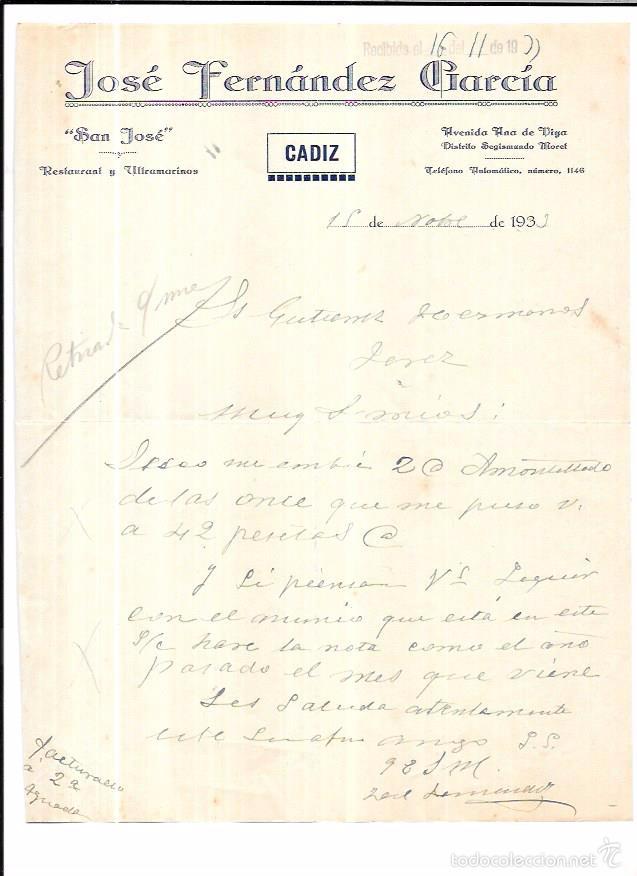 Recibida el 16 del 11 de 1933
José Fernández García
"San José"
Restaurant y Ultramarinos
CADIZ
Avenida Ana de Viya
Distrito Segismundo Moret
Teléfono Automático, número, 1146
15 de Nobe de 1933
Srs Gutierrez Hermanos
Jerez
Muy Sr mios:
Deseo me embie 2 @ Amontillado
de las once que me puso V.
a 42 pesetas @
Y si piensan Vs seguir
con el que está en este
S/c hare la nota como el año
pasado el mes que viene
Les saluda atentamente
este amigo S.S.
q E S M.
José Fernandez
Facturado
a 2a
Aguada